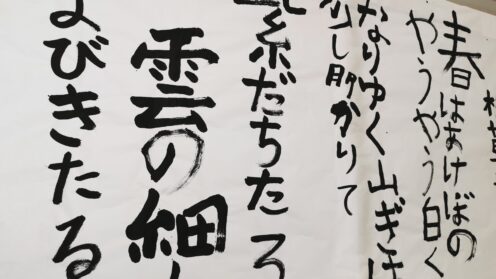 枕草子
春はあけぼの
やうやう白く
なりゆく山ぎは
少し明かりて
紫だちたる
雲の細
なびきたる